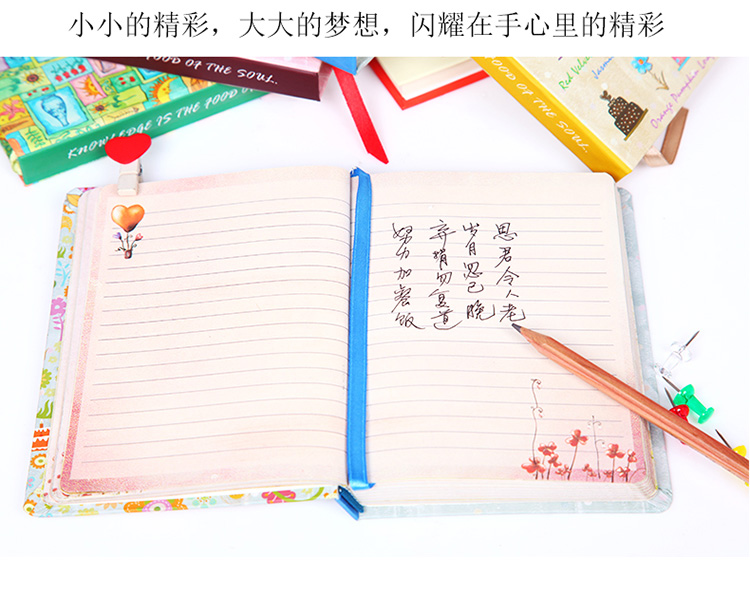 小小的精彩，大大的梦想，闪耀在手心里的精彩
FOOD OF THE SOUL.
KNOWLEDGE IS THE FOOD OF THE
FOOD OF THE SOUL.
Red Velvet
Jasmine
Orange Pumpkin
思君令人老
岁月忽已晚
弃捐勿复道
努力加餐饭